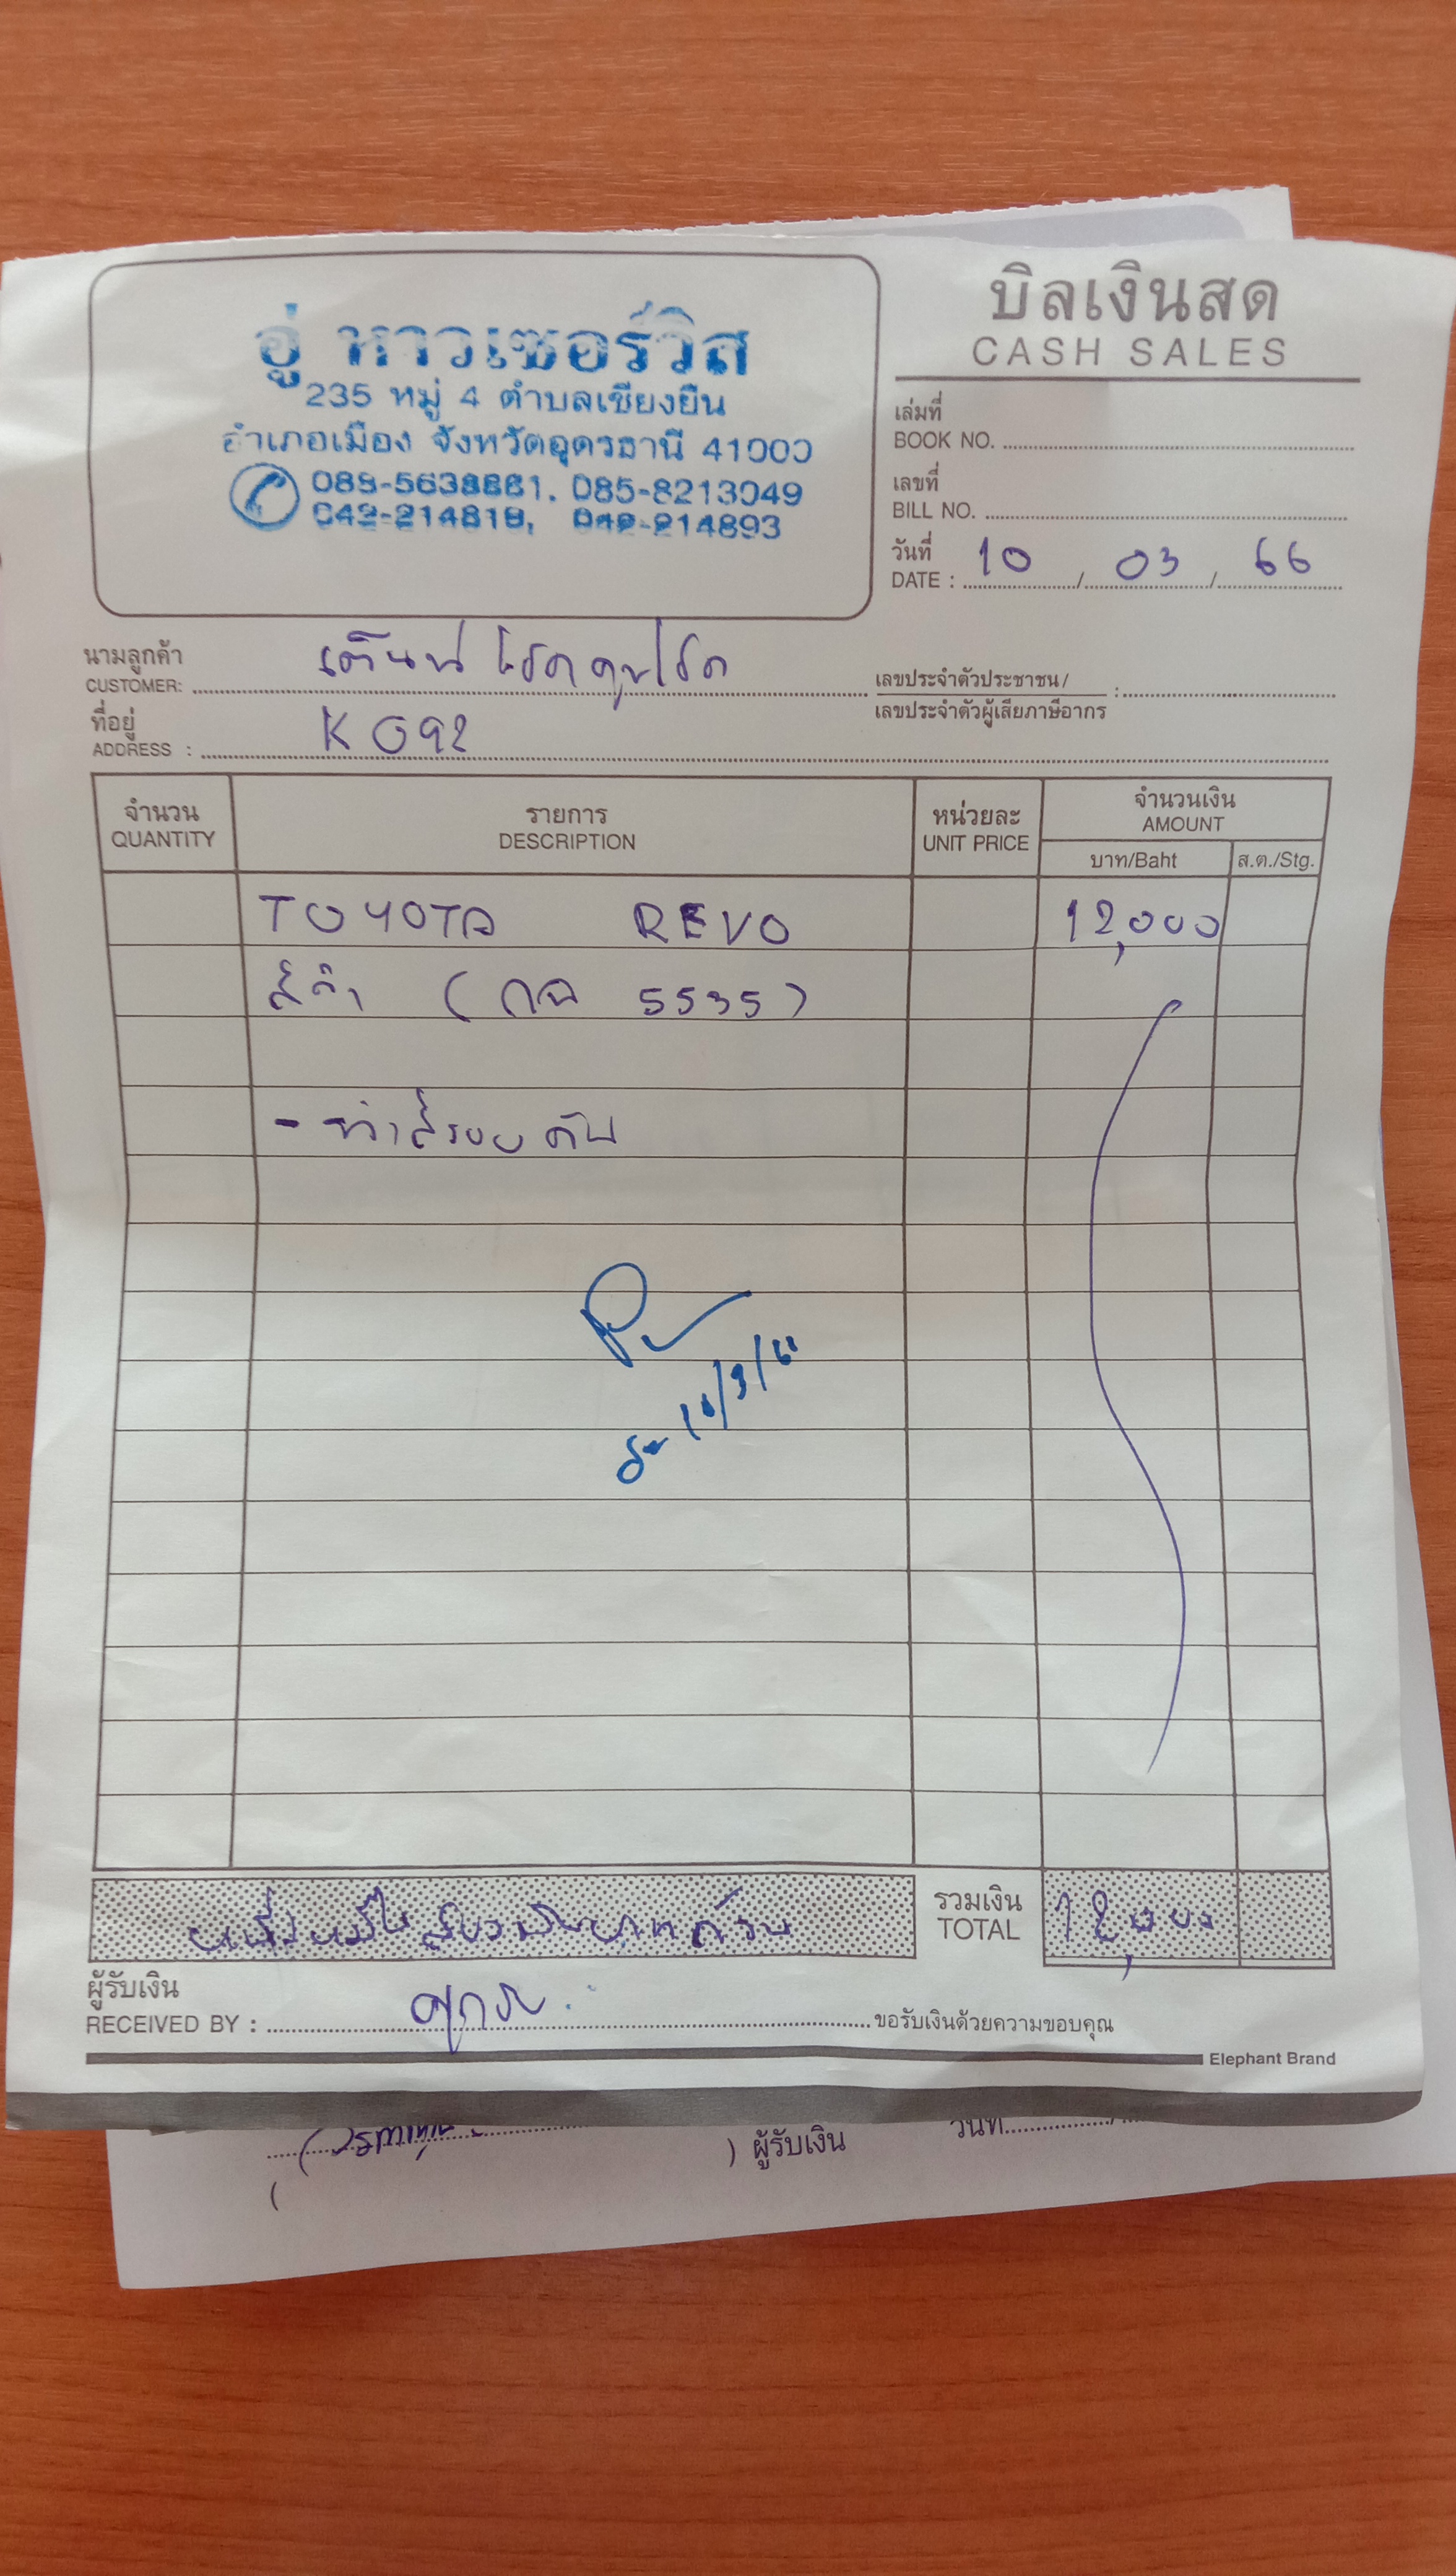 อู่ หาวเซอร์วิส
235 หมู่ 4 ตำบลเชียงยืน
อำเภอเมือง จังหวัดอุดรธานี 41000
085-8213049
042-214819, 042-214893
บิลเงินสด
CASH SALES
เล่มที่
BOOK NO.
เลขที่
BILL NO.
วันที่
DATE : 10 / 03 / 66
นามลูกค้า
CUSTOMER: เต็นท์
เลขประจำตัวประชาชน/ :
เลขประจำตัวผู้เสียภาษีอากร
ที่อยู่
ADDRESS : K 092
จำนวน รายการ หน่วยละ จำนวนเงิน
QUANTITY DESCRIPTION UNIT PRICE AMOUNT
บาท/Baht ส.ต./Stg.
TOYOTA REVO 12,000
สีดำ ( 5535)
- ทำสีรอบคัน
10/3/66
หนึ่งหมื่นสองพันบาทถ้วน รวมเงิน 12,000
TOTAL
ผู้รับเงิน
RECEIVED BY : ขอรับเงินด้วยความขอบคุณ
Elephant Brand
) ผู้รับเงิน วันที่
(